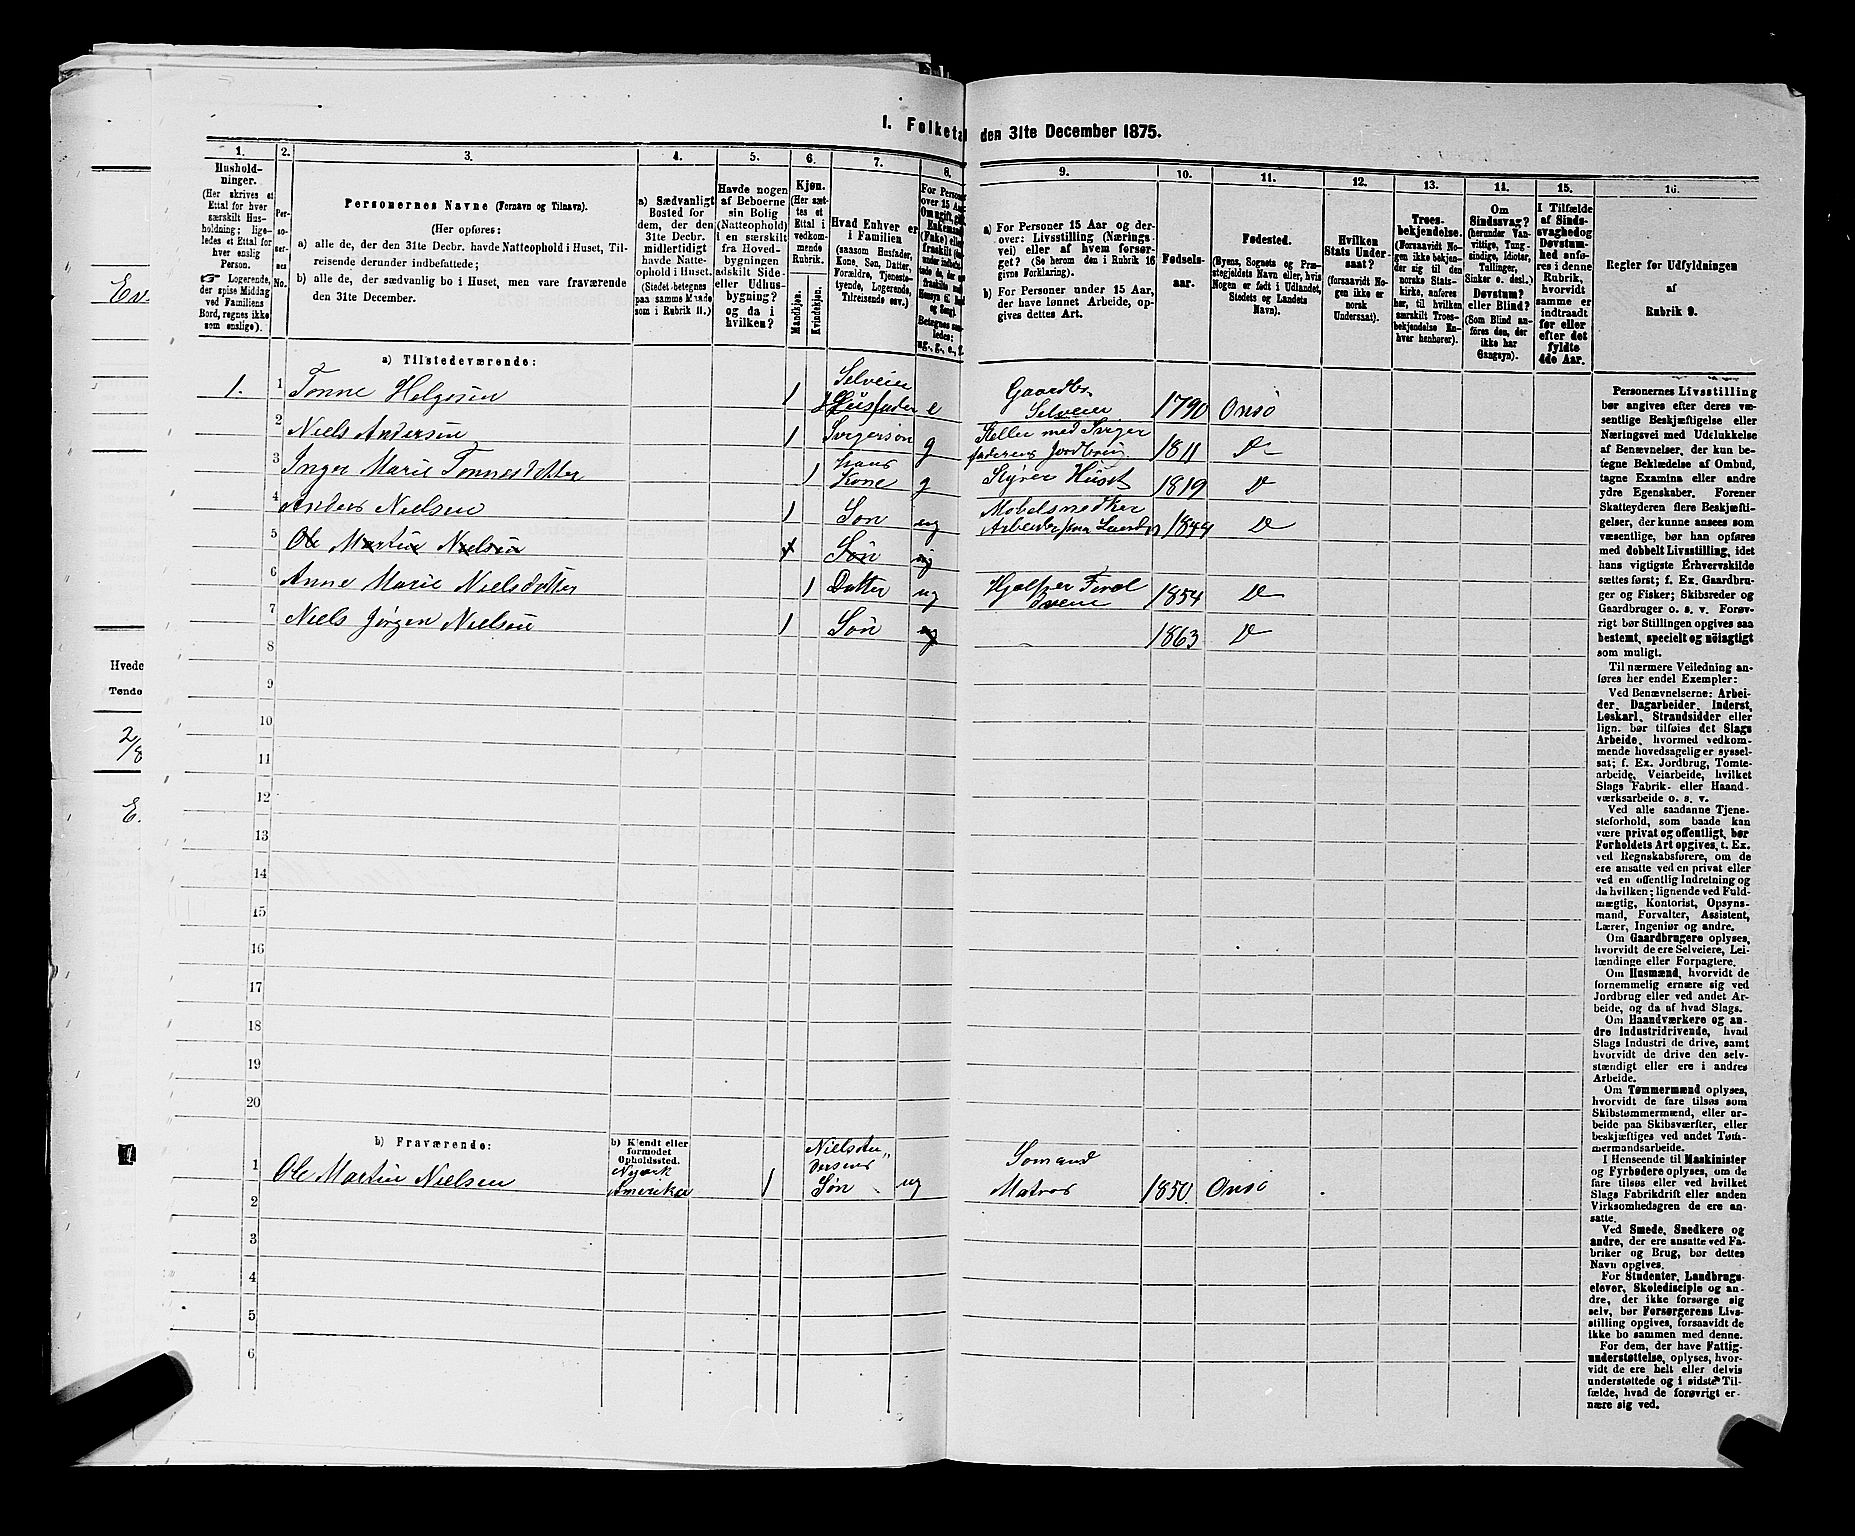 I. Folketal den 31te December 1875.
1. 2. 3. 4. 5. 6. 7. 8. 9. 10. 11. 12. 13. 14. 15. 16.
Hushold-
ninger.
(Her skrives et
Ettal for hver
særskilt Hus-
holdning; lige-
ledes et Ettal for
hver enslig
Person.
☞ Logerende,
der spise Middag
ved Familiens
Bord, regnes ikke
som enslige).
Per-
so-
ner-
nes
No.
Personernes Navne (Fornavn og Tilnavn).
(Her opføres:
a) alle de, der den 31te Decbr. havde Natteophold i Huset, Til-
reisende derunder indbefattede;
b) alle de, der sædvanlig bo i Huset, men vare fraværende
den 31te December.
a) Sædvanligt
Bosted for
dem, der den
31te Decbr.
midlertidigt
havde Natte-
ophold i Huset.
(Stedet betegnes
paa samme Maade
som i Rubrik 11.)
Havde nogen
af Beboerne
sin Bolig
(Natteophold)
i en særskilt
fra Hoved-
bygningen
adskilt Side-
eller Udhus-
bygning?
og da i
hvilken?
Kjøn.
(Her sæt-
tes et
Ettal i
vedkom-
mende
Rubrik.
Mandkjøn.
Kvindekjøn.
Hvad Enhver er
i Familien
(saasom Husfader,
Kone, Søn, Datter,
Forældre, Tjeneste-
tyende, Logerende,
Tilreisende osv.)
a) For Personer 15 Aar og der-
over: Livsstilling (Nærings-
vei) eller af hvem forsør-
get? (Se herom den i Rubrik 16
givne Forklaring).
b) For Personer under 15 Aar,
der have lønnet Arbeide, op-
gives dettes Art.
Fødsels-
aar.
Fødested.
(Byens, Sognets og Præ-
stegjeldets Navn eller, hvis
Nogen er født i Udlandet,
Stedets og Landets
Navn).
Hvilken
Stats Under-
saat?
(forsaavidt No-
gen ikke er
norsk
Undersaat).
Troes-
bekjendelse.
(Forsaavidt No-
gen ikke bekjen-
der sig til den
norske Stats-
kirke, anføres
her, til hvilken
særskilt Troes-
bekjendelse En-
hver henhører).
Om
Sindssvag?
(herunder Van-
vittige, Tung-
sindige, Idioter,
Tullinger,
Sinker o. desl.)
Døvstum?
eller Blind?
(Som Blind an-
føres den, der
ikke har
Gangsyn).
I Tilfælde
af Sinds-
svaghed og
Døvstum-
hed anfø-
res i denne
Rubrik,
hvorvidt
samme er
indtraadt
før eller
efter det
fyldte
4de Aar.
Regler for Udfyldningen
af
Rubrik 9.
a) Tilstedeværende:
Selveier Gaardbr.
1. 1 Tønne Helgesen 1 Husfader e Selveier 1790 Onsø
2 Niels Andersen 1 Svigersøn g 1811 D
3 Inger Marie Tønnesdatter 1 hans Kone g Styrer Huset 1819 D
4 Anders Nielsen 1 Søn ug Møbelsnedker 1844 D
5 Ole Martin Nielsen Søn ug
6 Anne Marie Nielsdatter 1 Datter ug Hjælper 1854 D
7 Niels Jørgen Nielsen 1 Søn 1863 D
8
9
10
11
12
13
14
15
16
17
18
19
20
b) Fraværende:
b) Kjendt eller
formodet
Opholdssted.
1 Ole Martin Nielsen Nyork Amerika 1 Niels Andersens Søn ug Sømand Matros 1850 Onsø
2
3
4
5
6
Personernes Livsstilling
bør angives efter deres væ-
sentlige Beskjæftigelse eller
Næringsvei med Udelukkelse
af Benævnelser, der kun be-
tegne Beklædelse af Ombud,
tagne Examina eller andre
ydre Egenskaber. Forener
Skatteyderen flere Beskjæfti-
gelser, der kunne ansees som
væsentlige, bør han opføres
med dobbelt Livsstilling, idet
hans vigtigste Erhvervskilde
sættes først; f. Ex. Gaardbru-
ger og Fisker; Skibsreder og
Gaardbruger o. s. v. Forøv-
rigt bør Stillingen opgives saa
bestemt, specielt og nøiagtigt
som muligt.
Til nærmere Veiledning an-
føres her endel Exempler:
Ved Benævnelserne: Arbei-
der, Dagarbeider, Inderst,
Løskarl, Strandsidder eller
lign. bør tilføies det Slags
Arbeide, hvormed vedkom-
mende hovedsagelig er syssel-
sat; f. Ex. Jordbrug, Tomte-
arbeide, Veiarbeide, hvilket
Slags Fabrik- eller Haand-
værksarbeide o. s. v.
Ved alle saadanne Tjene-
steforhold, som baade kan
være privat og offentligt, bør
Forholdets Art opgives, t. Ex.
ved Regnskabsførere, om de
ere ansatte ved en privat eller
ved en offentlig Indretning og
da hvilken; lignende ved Fuld-
mægtig, Kontorist, Opsyns-
mand, Forvalter, Assistent,
Lærer, Ingeniør og andre.
Om Gaardbrugere oplyses,
hvorvidt de ere Selveiere, Lei-
lændinge eller Forpagtere.
Om Husmænd, hvorvidt de
fornemmelig ernære sig ved
Jordbrug eller ved andet Ar-
beide, og da af hvad Slags.
Om Haandværkere og an-
dre Industridrivende, hvad
Slags Industri de drive, samt
hvorvidt de drive den selv-
stændigt eller ere i andres
Arbeide.
Om Tømmermænd oplyses,
hvorvidt de fare tilsøs som
Skibstømmermænd, eller ar-
beide paa Skibsværfter, eller
beskjæftiges ved andet Tøm-
mermandsarbeide.
I Henseende til Maskinister
og Fyrbødere oplyses, om de
fare tilsøs eller ved hvilket
Slags Fabrikdrift eller anden
Virksomhedsgren de ere an-
satte.
Ved Smede, Snedkere og
andre, der ere ansatte ved Fa-
briker og Brug, bør dettes
Navn opgives.
For Studenter, Landbrugs-
elever, Skoledisciple og an-
dre, der ikke forsørge sig
selv, bør Forsørgerens Livs-
stilling opgives, forsaavidt de
ikke bo sammen med denne.
For dem, der have Fattig-
understøttelse, oplyses, hvor-
vidt de ere helt eller delvis
understøttede og i sidste Til-
fælde, hvad de forøvrigt er-
nære sig ved.
Hvede
Tønde
2/8
E.